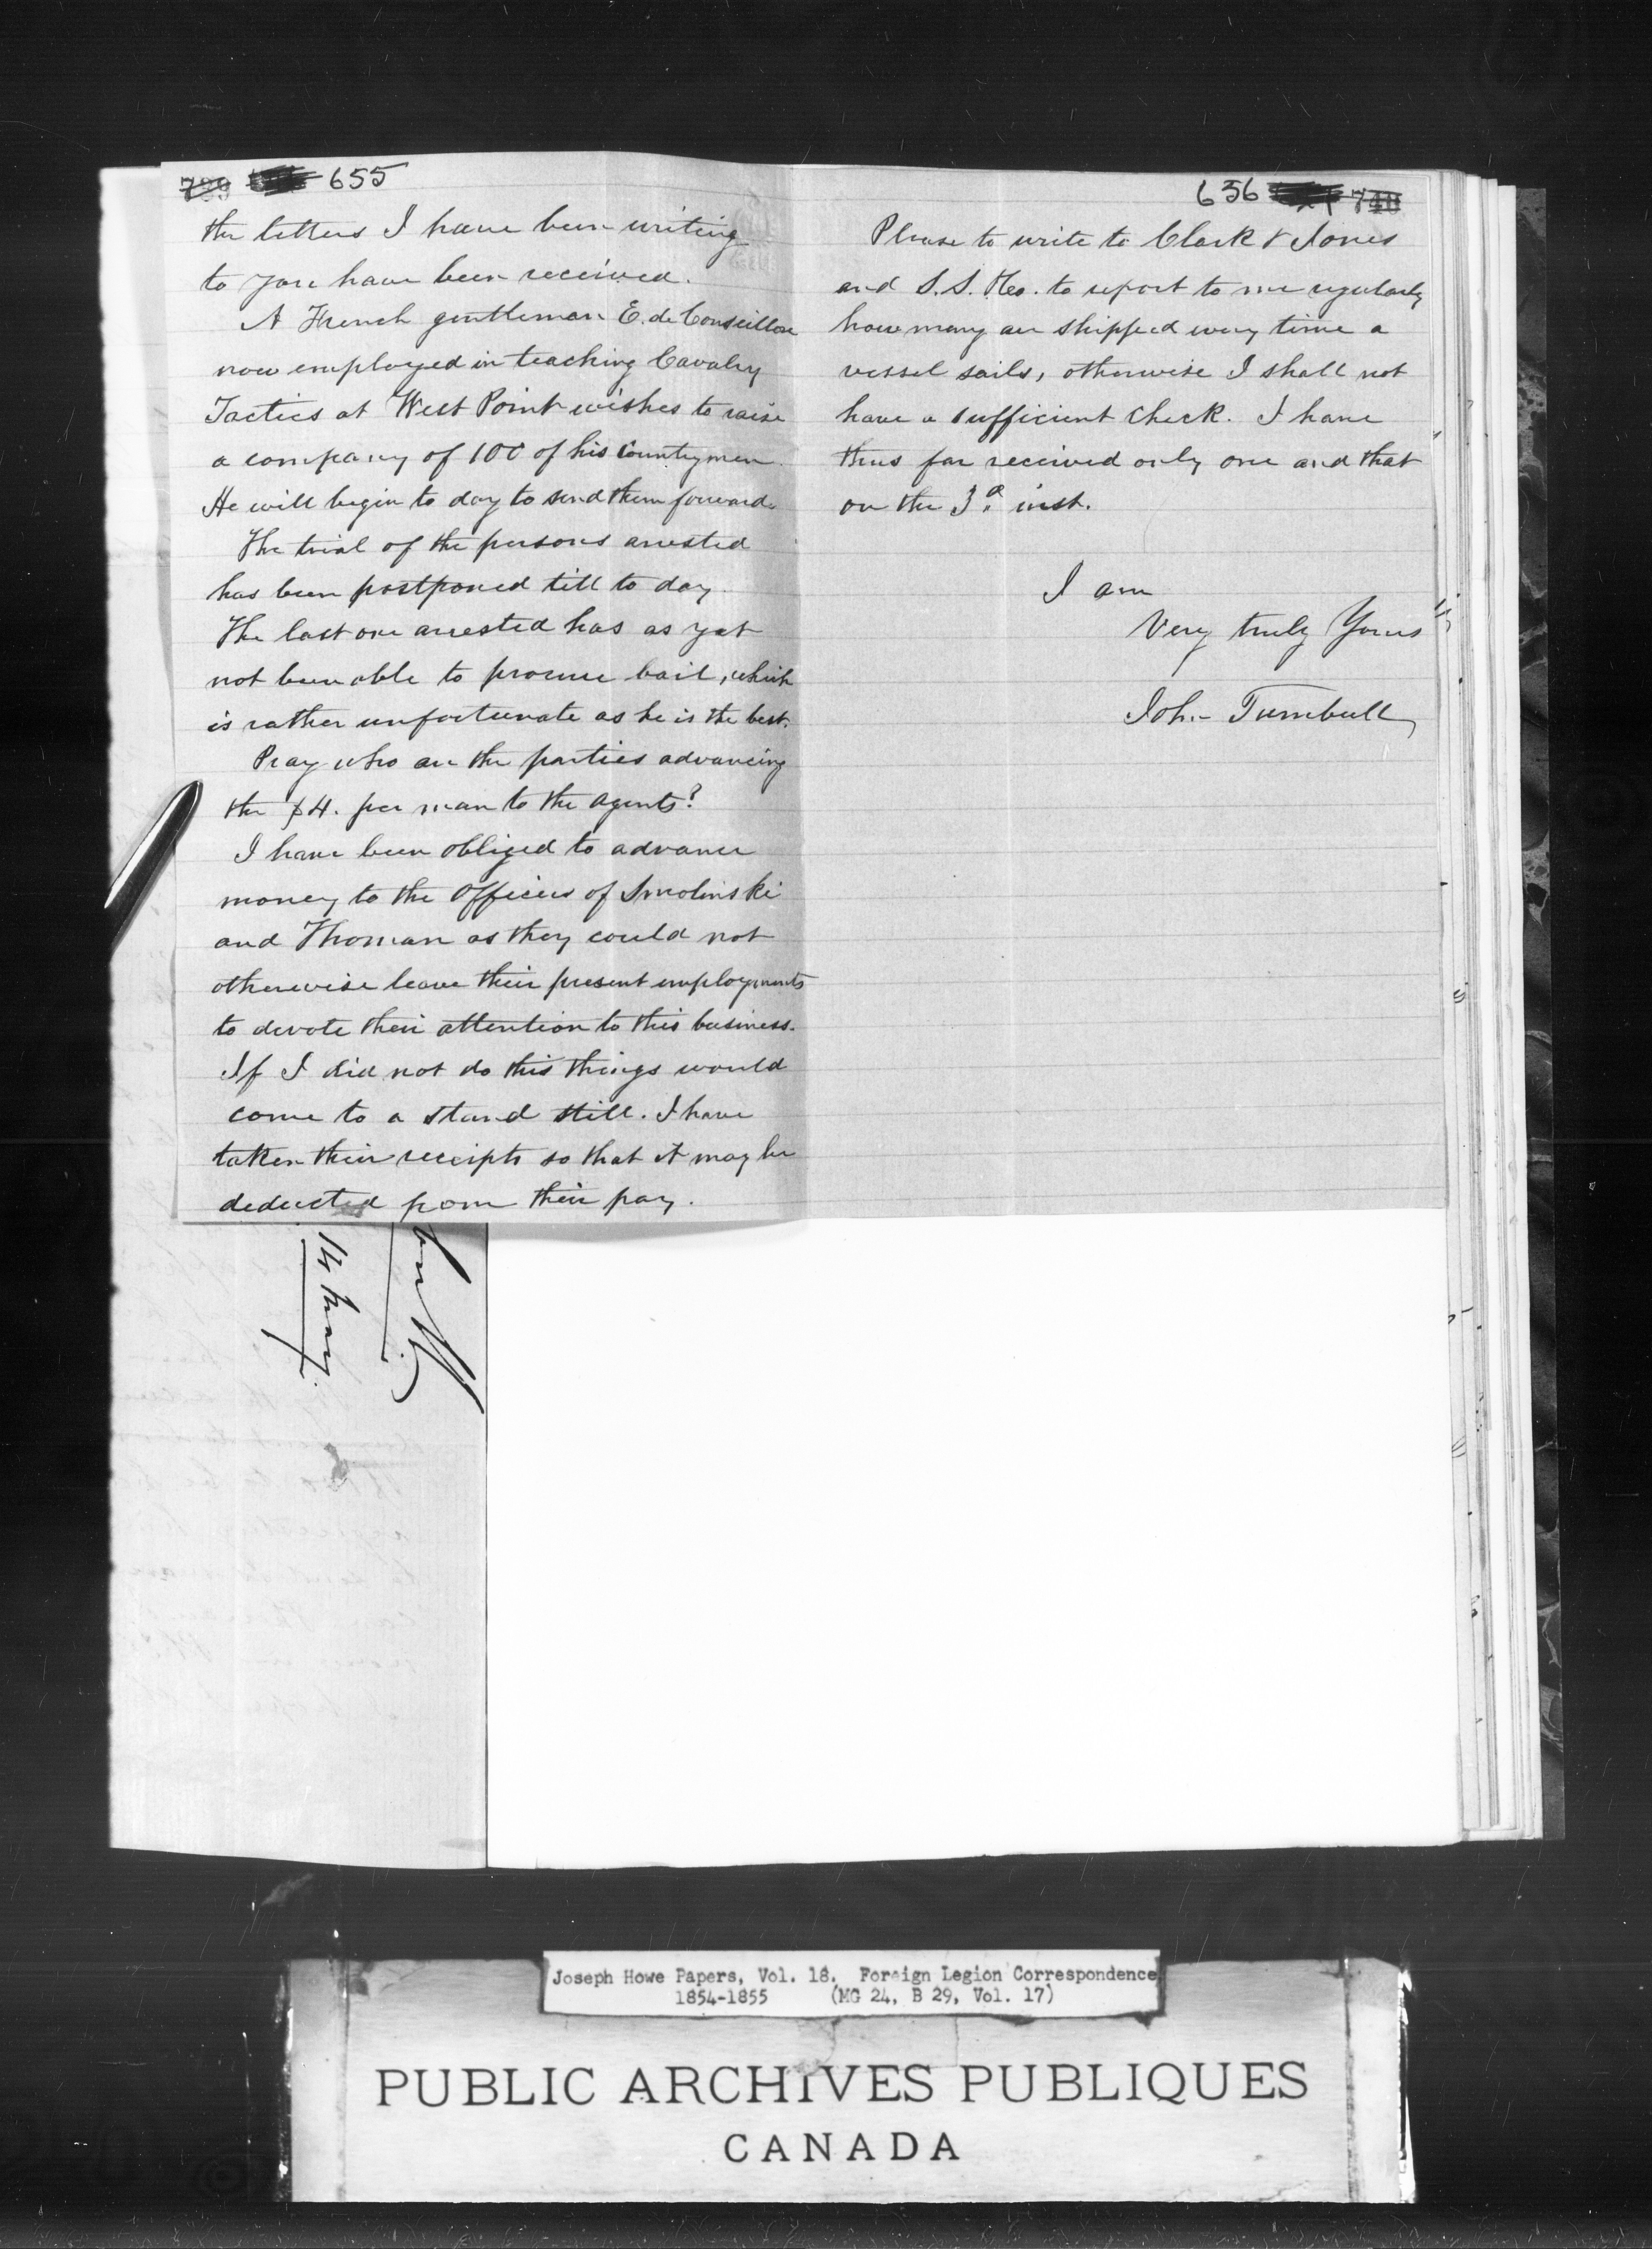 655
the letters I have been writing
to you have been received.
A French gentleman E. de Conseillon
now employed in teaching Cavalry
Tactics at West Point wishes to raise
a company of 100 of his countrymen.
He will begin to day to send them forward.
The trial of the persons arrested
has been postponed till to day.
The last one arrested has as yet
not been able to procure bail, which
is rather unfortunate as he is the best.
Pray who are the parties advancing
the $4. per man to the agents?
I have been obliged to advance
money to the Officers of Smolinski
and Thoman as they could not
otherwise leave their present employments
to devote their attention to this business.
If I did not do this things would
come to a stand still. I have
taken their receipts so that it may be
deducted from their pay.
14 May.
656 740
Please to write to Clark & Jones
and S. S. & Co. to report to me regularly
how many are shipped every time a
vessel sails, otherwise I shall not
have a sufficient check. I have
thus far received only one and that
on the 3d. inst.
I am
Very truly Yours
John Turnbull
Joseph Howe Papers, Vol. 18, Foreign Legion Correspondence
1854-1855 (MG 24, B 29, Vol. 17)
PUBLIC ARCHIVES PUBLIQUES
CANADA